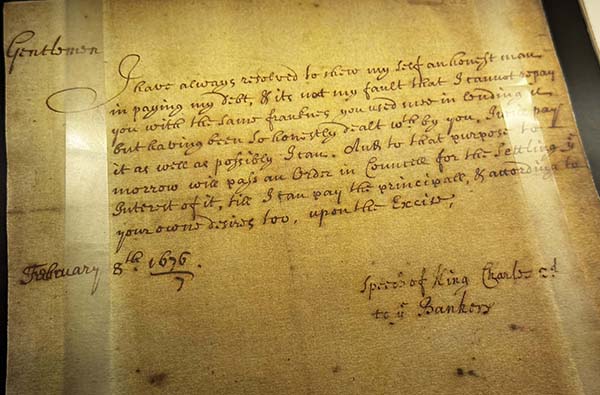 Gentlemen
I have always resolved to shew my self an honest man
in paying my debt, & its not my fault that I cannot repay
you with the same franknes you used mee in lending it
but having been so honestly dealt wth by you, I will pay
it as well as possibly I can. And to that purpose to
morrow will pass an Order in Councell for the settling ye
Interest of it, till I can pay the principall, & according to
your owne desires too, upon the Excise,
February 8th 1676/7.
Speech of King Charles 2d
to ye Bankers